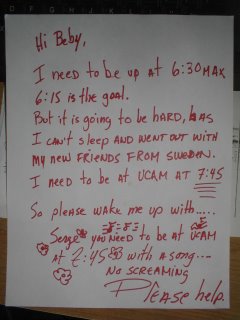 Hi Beby,
I need to be up at 6:30 MAX
6:15 is the goal.
But it is going to be hard, as
I can't sleep and went out with
my new friends from Sweden.
I need to be at UCAM at 7:45
So please wake me up with.....
Serge you need to be at UCAM
at 7:45 with a song....
No screaming
Please help.